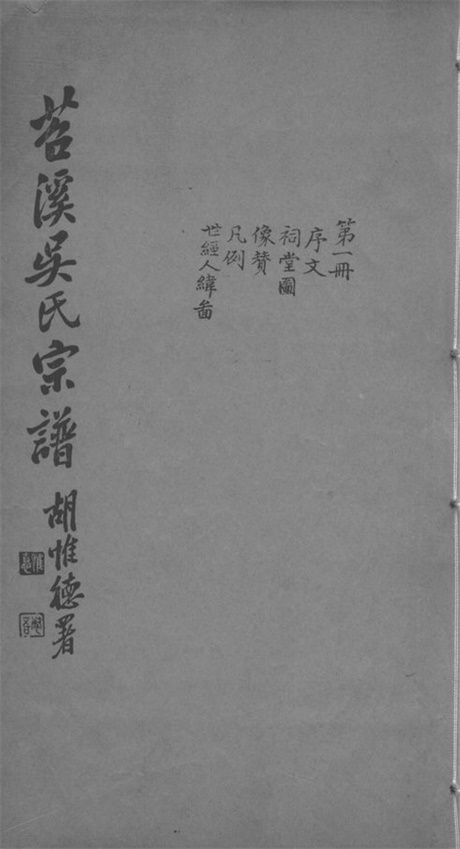 第一冊
序文
祠堂圖
像贊
凡例
世經人緯畐
苕溪吳氏宗譜
胡惟德署